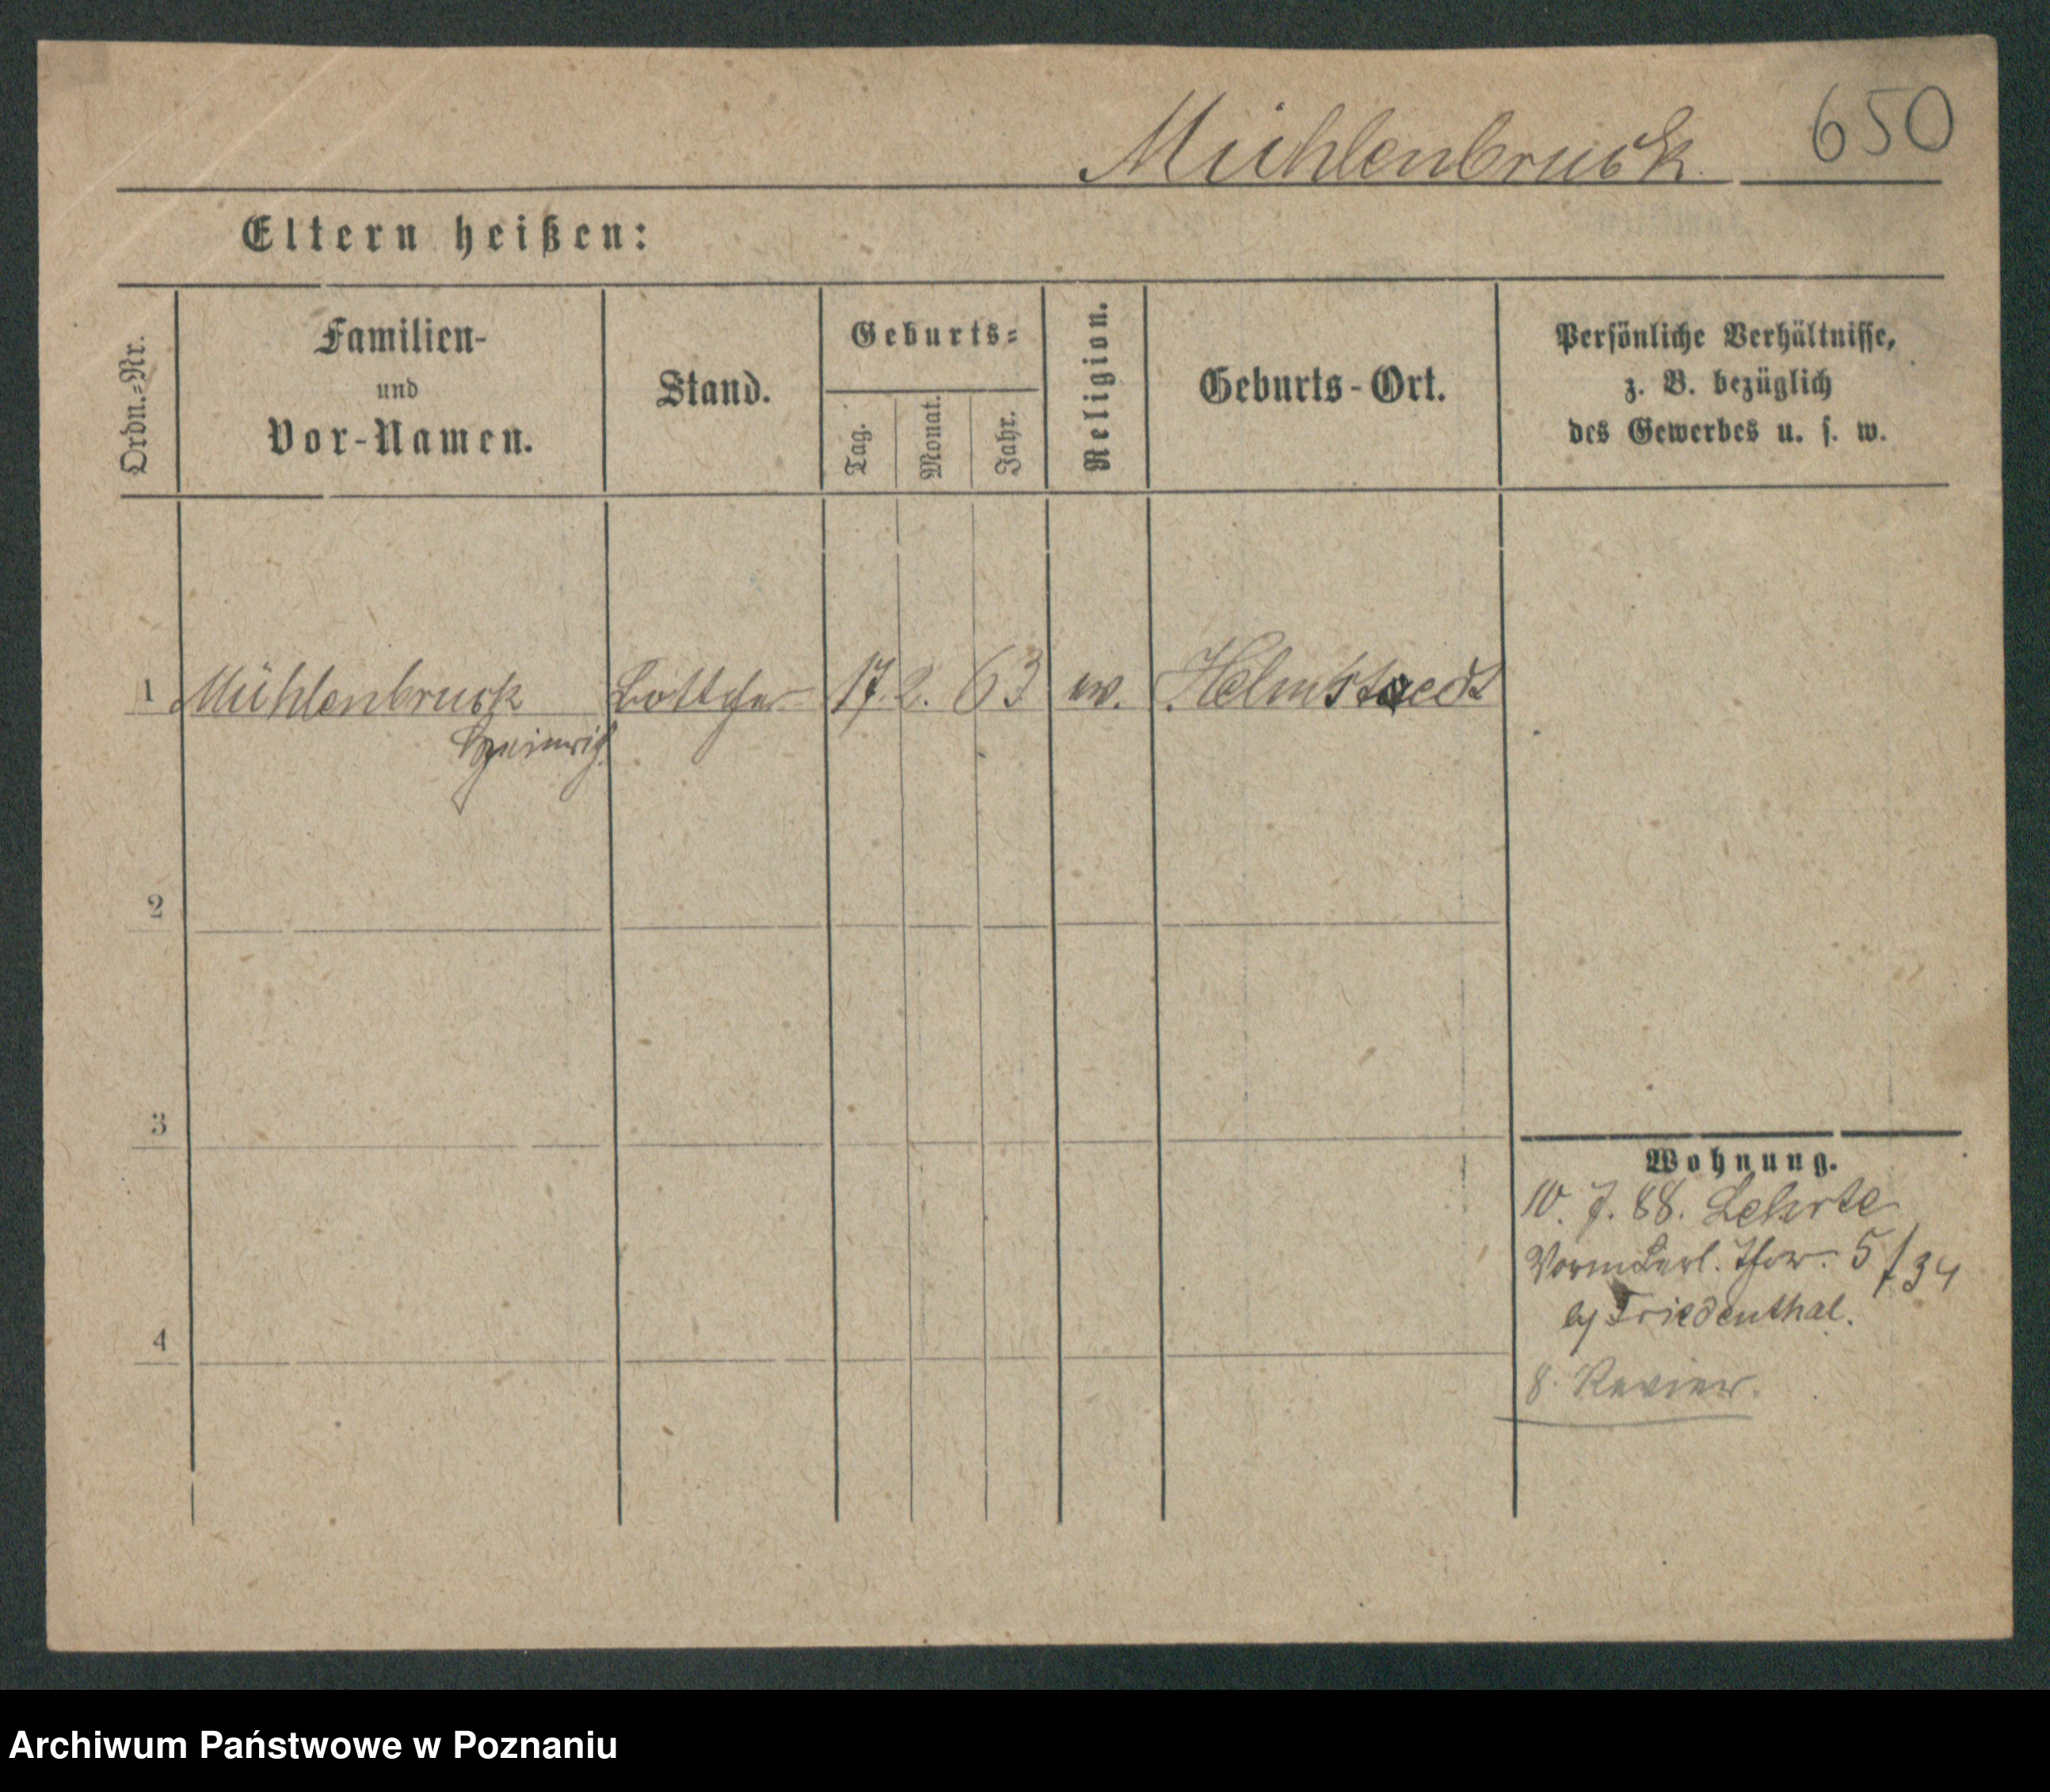 Mühlenbruck. 650
Eltern heißen:
Ordn.=Nr.
Familien-
und
Vor-Namen.
Stand.
Geburts=
Tag.
Monat.
Jahr.
Religion.
Geburts-Ort.
Persönliche Verhältnisse,
z. B. bezüglich
des Gewerbes u. s. w.
1 Mühlenbruck Böttcher 17. 2. 63 ev. Helmstaedt
Heinrich
2
3
4
Wohnung.
10. 7. 88. Lehrte
Vorm. Berl. Thor. 5/34
by Friedenthal.
8. Revier.
Archiwum Państwowe w Poznaniu